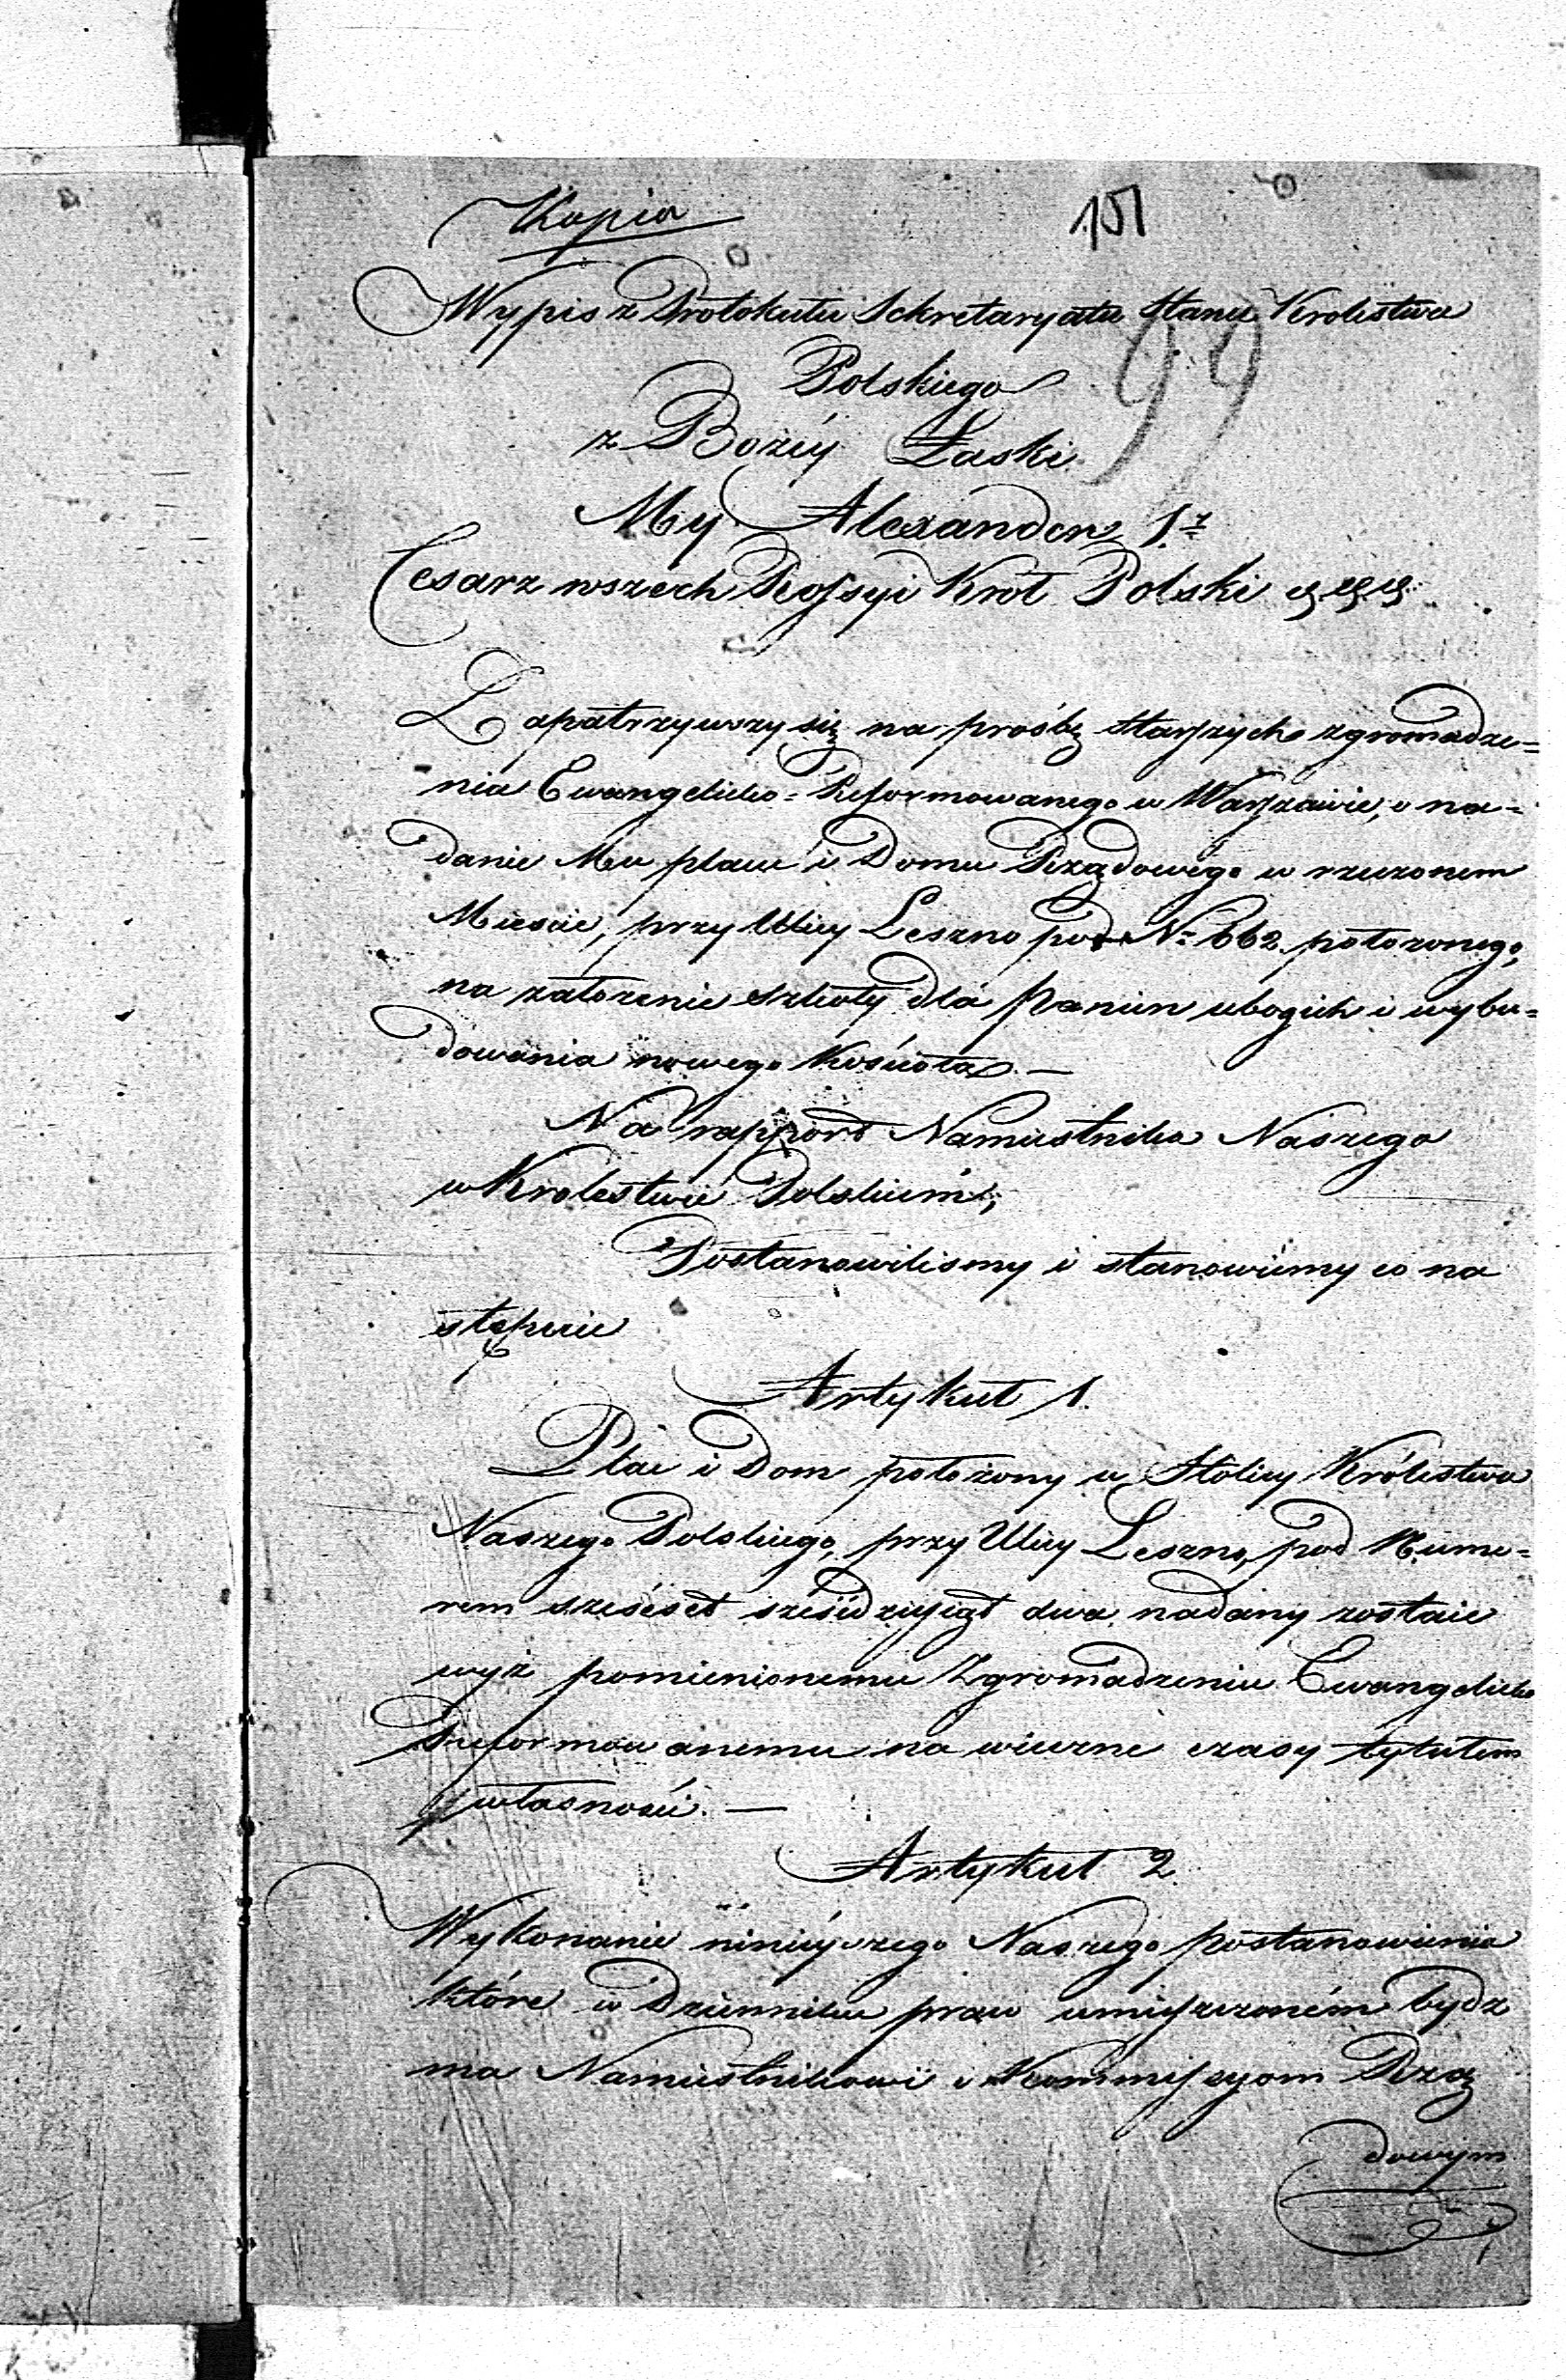 Kopia
151
99
Wypis z Protokułu Sekretaryatu Stanu Krolestwa
Polskiego
z Bożéy Łaski
My Alexander I.
Cesarz wszech Rossyi Krol Polski &c &c &c
Zapatrzywszy się na prośbę Starszych zgromadze=
nia Ewangelicko=Reformowanego w Warszawie, o na=
danie Mu placu i Domu Rządowego w rzeczonem
Miescie, przy Ulicy Leszno pod N= 662 położonego,
na założenie szkoły dla Panien ubogich i wybu=
dowania nowego Kościoła. —
Na rapport Namiestnika Naszego
w Krolestwie Polskiem,
Postanowilismy i stanowiemy co na
stępuie
Artykuł 1.
Plac i Dom położony w Stolicy Królestwa
Naszego Polskiego, przy Ulicy Leszno, pod Nume=
rem sześćset sześćdziesiąt dwa nadany zostaie
wyż pomienionemu Zgromadzeniu Ewangelicko
Reformowanemu na wieczne czasy tytułem
własności. —
Artykuł 2
Wykonanie ninieyszego Naszego postanowienia
które w Dzienniku praw umieszczoném bydz
ma Namiestnikowi i Kommissyom Rzą
dowym